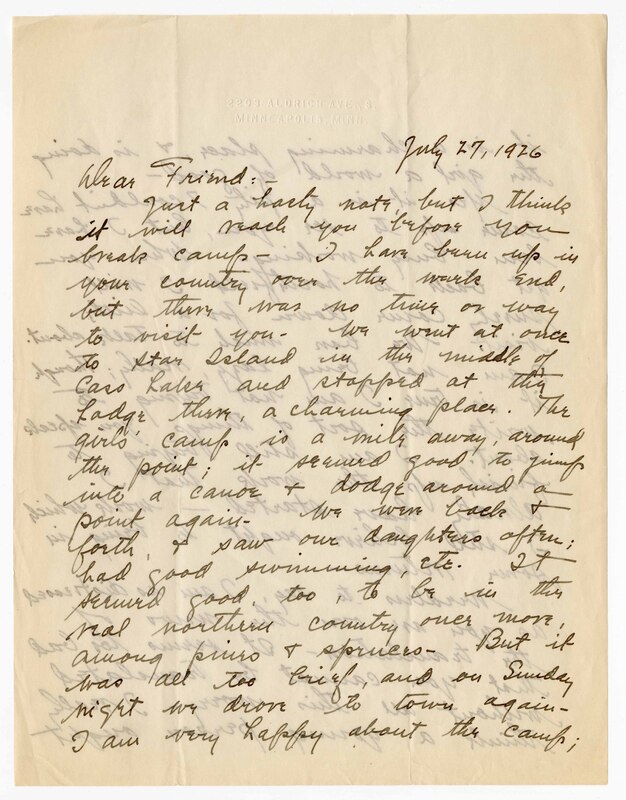 2203 ALDRICH AVE. S.
MINNEAPOLIS, MINN.
July 27, 1926
Dear Friend:-
Just a hasty note but I think
it will reach you before you
break camp- I have been up in
your country over the week end,
but there was no time or way
to visit you- We went at once
to Star Island in the middle of
Cass Lake and stopped at the
Lodge there, a charming place. The
girls' camp is a mile away, around
the point; it seemed good to jump
into a canoe & dodge around a
point again- We were back &
forth, & saw our daughters often;
had good swimming, etc. It
seemed good, too, to be in the
real northern country once more,
among pines & spruces- But it
was all too brief, and on Sunday
night we drove to town again-
I am very happy about the camp;